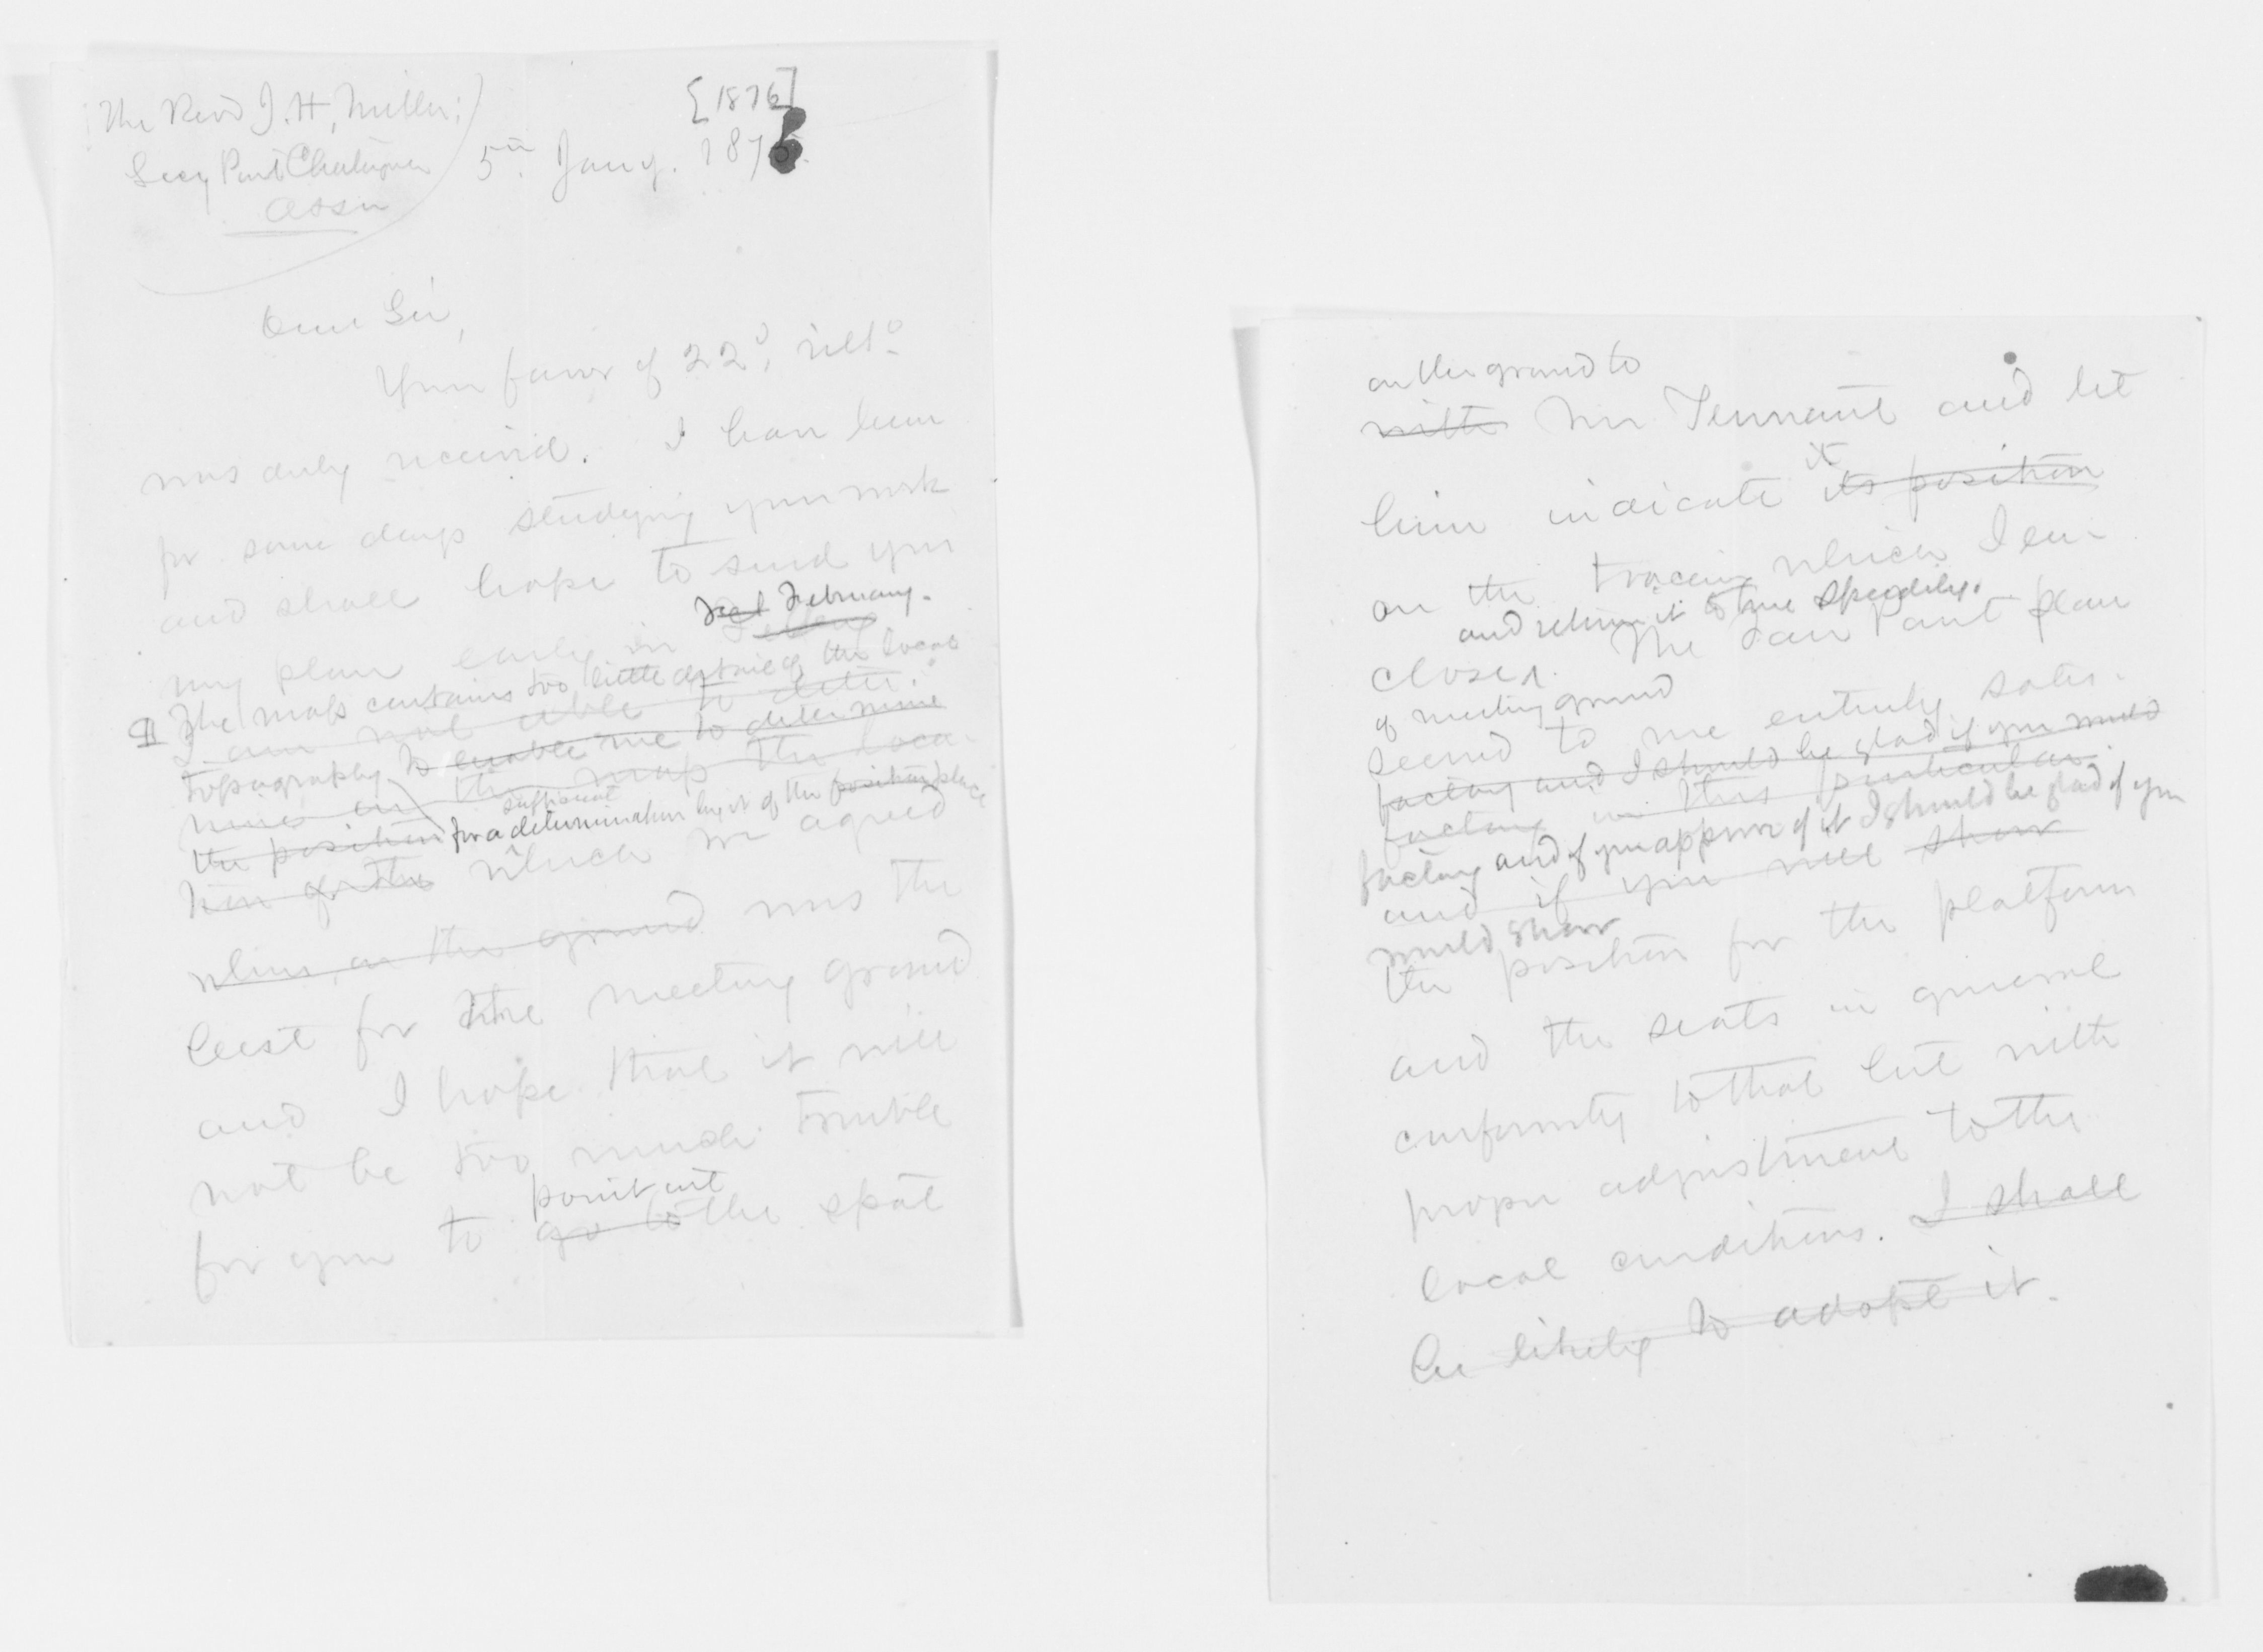 The Revd J. H. Miller;
Secy Point Chatauqua
Assn
[1876]
5th Jany. 1876.
Dear Sir,
Your favor of 22d, ulto
was duly received. I have been
for some days studying your work
and shall hope to send you
February.
my plan early in
¶ The map contains too little detail of the local
I am not able to deter-
topography to enable me to determine
mine on the map the loca-
sufficient
the position for a determination by it of the position place
tion of the which we agreed
when on the ground was the
best for the meeting ground
and I hope that it will
not be too much trouble
point out
for you to go to the spot
on the ground to
with Mr Tennant and let
it
him indicate its position
on the tracing which I en-
and return it to me speedily.
close. The Fair Point plan
of meeting ground
seemed to me entirely satis-
factory and I should be glad if you would
factory in this particular.
factory and if you approve of it I should be glad if you
and if you will show
would show
the position for the platform
and the seats in general
conformity to that but with
proper adjustment to the
local conditions. I shall
be likely to adopt it.